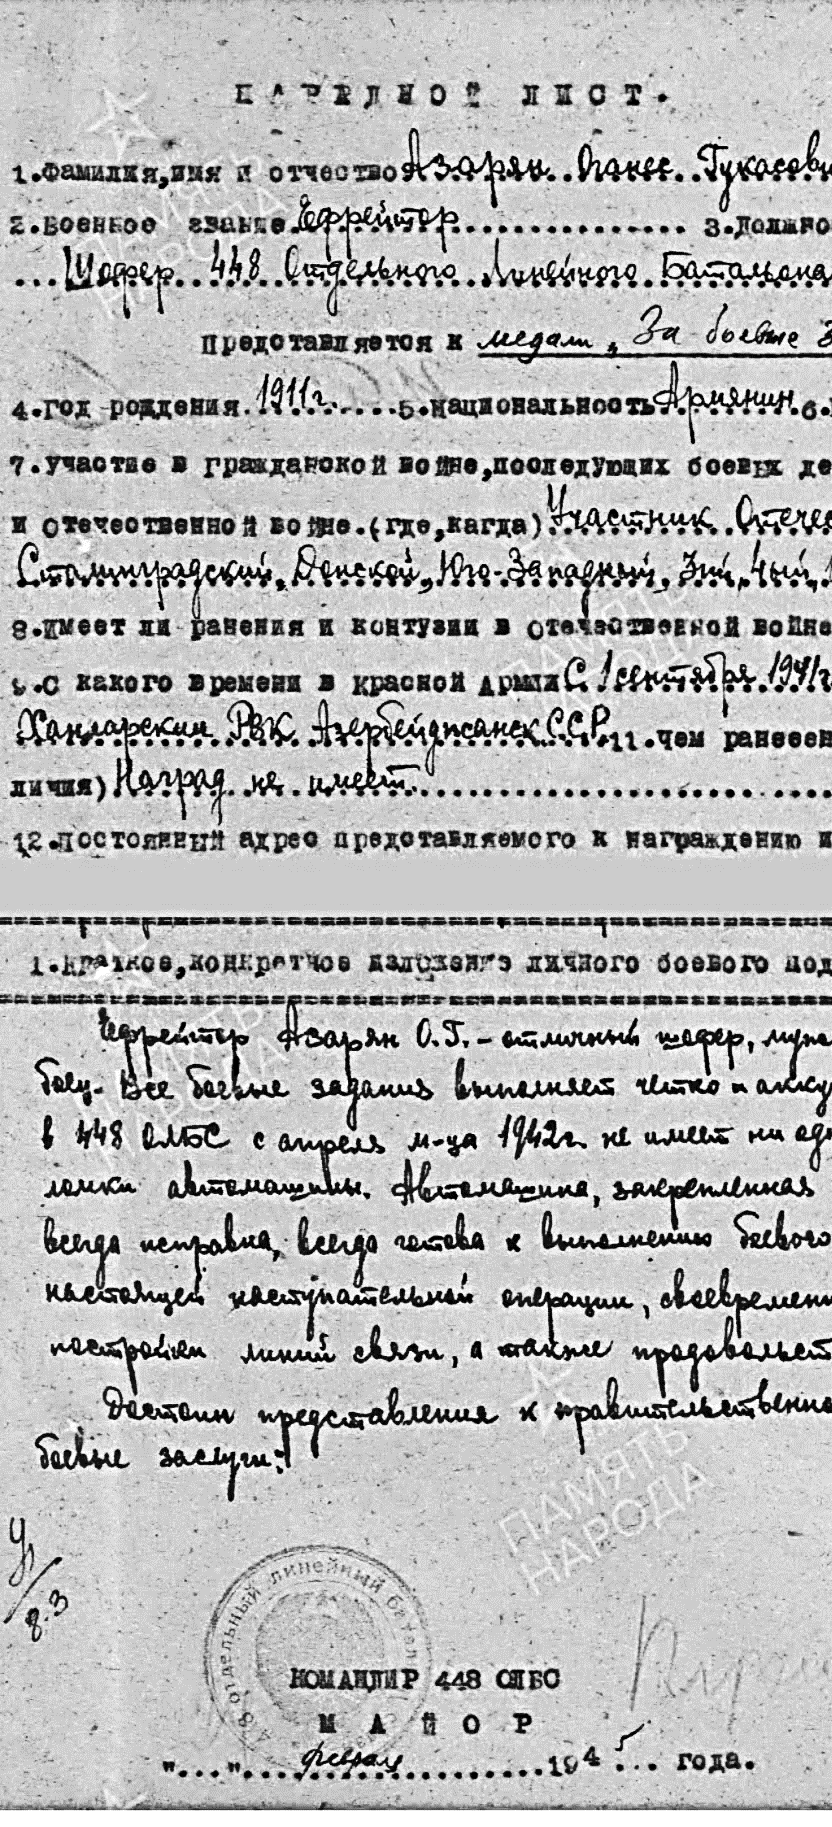 НАГРАДНОЙ ЛИСТ.
1.Фамилия,имя и отчество Азарян Оганес Гукасови
2.Военное звание Ефрейтор 3.Должно
Шофер 448 Отдельного Линейного Батальона
Представляется к медали „За боевые з
4.год рождения 1911г. 5.национальность Армянин 6.
7.участие в гражданской войне,последующих боевых де
и отечественной войне.(где,кагда) Участник Отечес
Сталинградский, Донской, Юго-Западный, 3ий, 4ый, 1
8.имеет ли ранения и контузии в отечественной войне
9.С какого времени в красной армии С 1 сентября 1941г
Ханларским РВК Азербейджанск ССР. 11.чем ранееен
личия) Наград не имеет.
12.постоянный адрес представляемого к награждению и
1.краткое,конкретное изложение личного боевого под
Ефрейтор Азарян О.Г. - отличный шофер, муже
боец. Все боевые задания выполняет четко и акку
в 448 ОЛБС с апреля м-ца 1942г. не имеет ни одн
ломки автомашины. Автомашина, закрепленная
всегда исправна, всегда готова к выполнению боевого
настоящей наступательной операции, своевременн
постройки линий связи, а также продовольст
Достоин представления к правительственно
боевые заслуги:
8.3
отдельный линейный батал
КОМАНДИР 448 ОЛБС
МАЙОР
"..." февраля 1945 года.
ПАМЯТЬ
НАРОДА